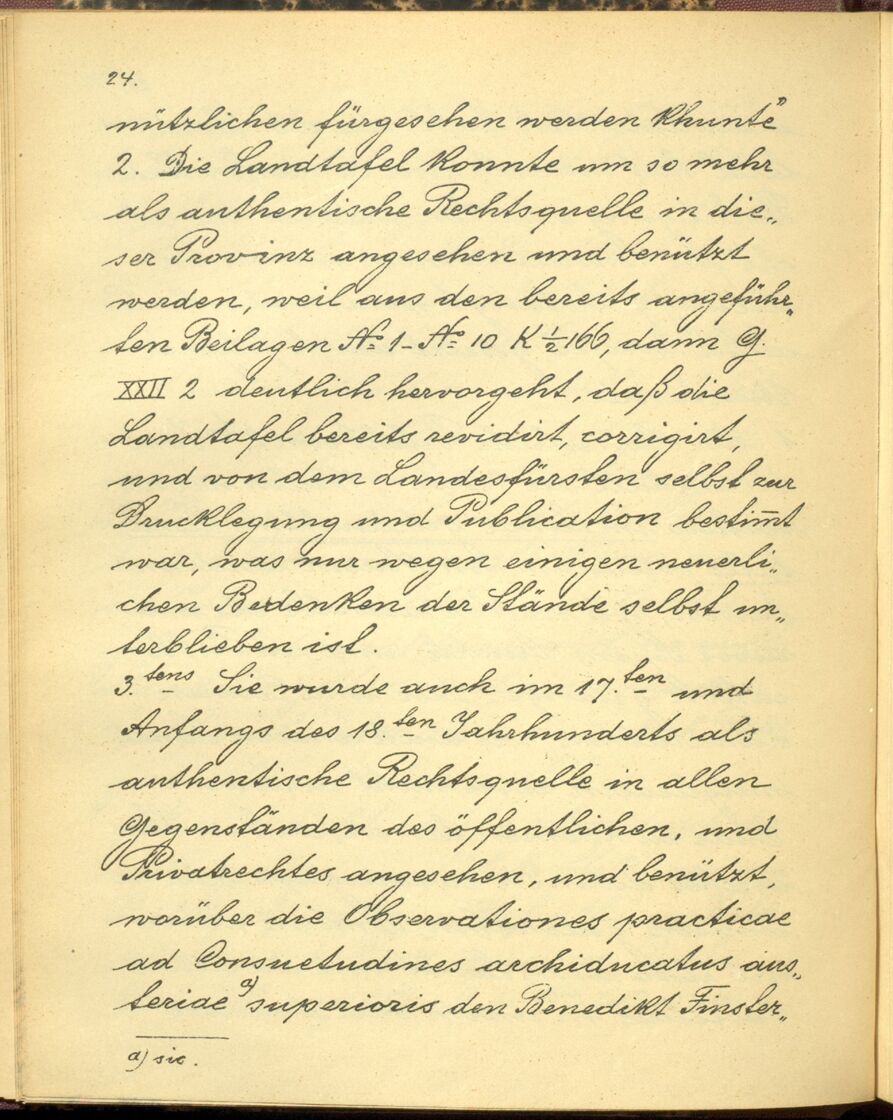 24.
nützlichen fürgesehen werden khunte"
2. Die Landtafel konnte um so mehr
als authentische Rechtsquelle in die„
ser Provinz angesehen und benützt
werden, weil aus den bereits angeführ„
ten Beilagen No 1 - No 10 K ½ 166, dann G.
XXII 2 deutlich hervorgeht, daß die
Landtafel bereits revidirt, corrigirt,
und von dem Landesfürsten selbst zur
Drucklegung und Publication bestim̅t
war, was nur wegen einigen neuerli„
chen Bedenken der Stände selbst un„
terblieben ist.
3.tens Sie wurde auch im 17.ten und
Anfangs des 18.ten Jahrhunderts als
authentische Rechtsquelle in allen
Gegenständen des öffentlichen, und
Privatrechtes angesehen, und benützt,
worüber die Observationes practicae
ad Consuetudines archiducatus aus„
teriae a) superioris den Benedikt Finster„
a) sic.